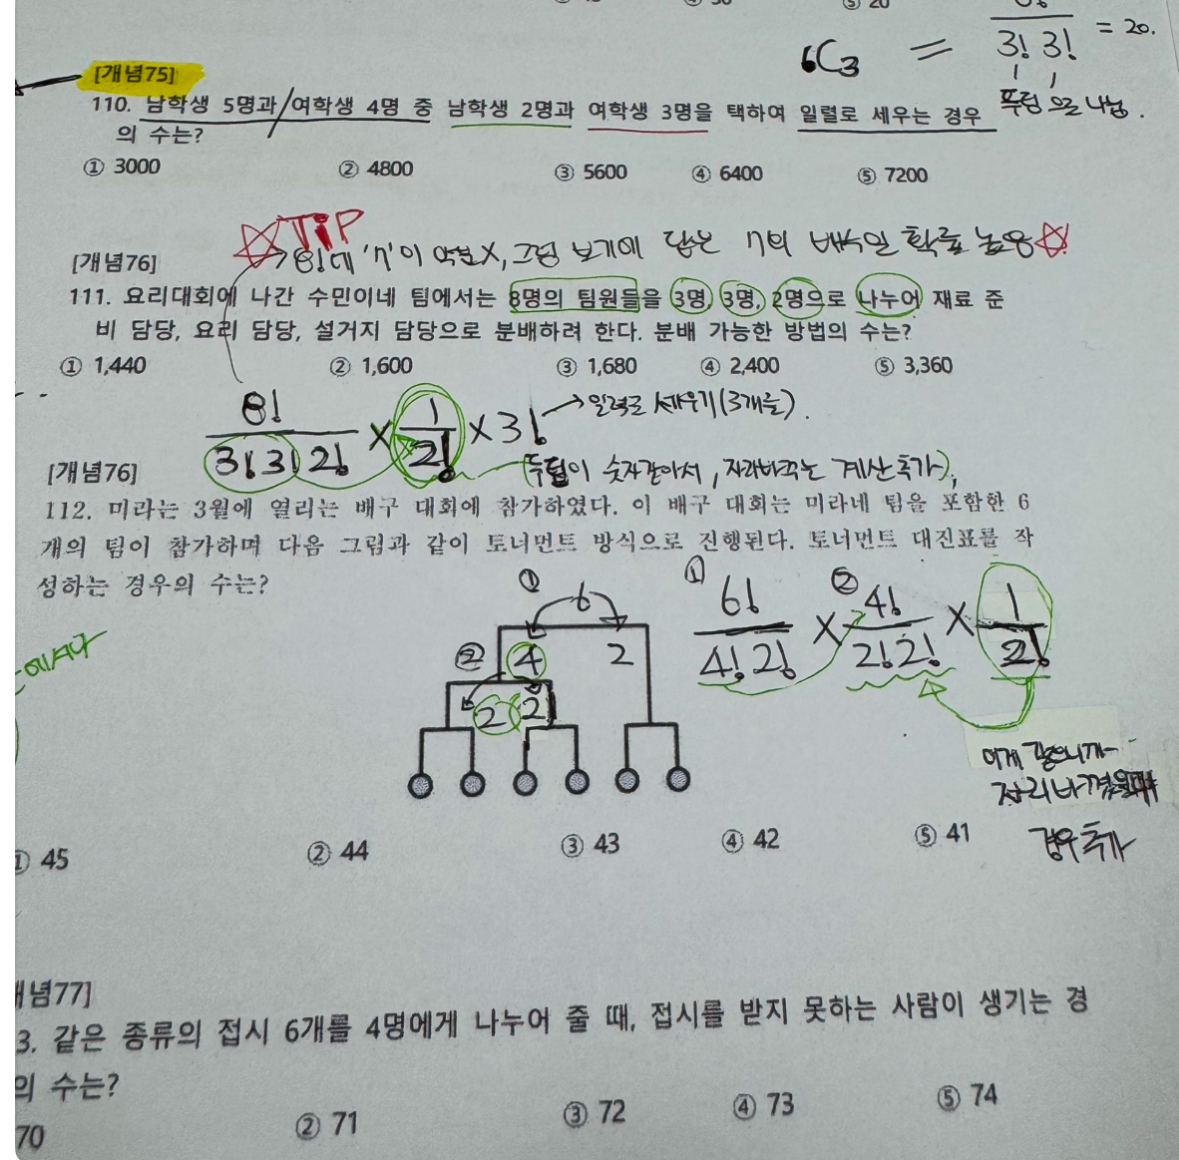 ⑤ 20
6C3 = 3! 3! = 20.
[개념75]
110. 남학생 5명과/여학생 4명 중 남학생 2명과 여학생 3명을 택하여 일렬로 세우는 경우
의 수는?
뚜껑 으로 나눔.
① 3000 ② 4800 ③ 5600 ④ 6400 ⑤ 7200
TiP
8!에 '7'이 약분X, 그럼 보기에 답은 7의 배수일 확률 높음
[개념76]
111. 요리대회에 나간 수민이네 팀에서는 8명의 팀원들을 3명, 3명, 2명으로 나누어 재료 준
비 담당, 요리 담당, 설거지 담당으로 분배하려 한다. 분배 가능한 방법의 수는?
① 1,440 ② 1,600 ③ 1,680 ④ 2,400 ⑤ 3,360
8! / 3!3!2! × 1 / 2! × 3! → 일렬로 세우기(3개를).
(뚜껑이 숫자같아서, 자리바꾸는 계산추가),
[개념76]
112. 미라는 3월에 열리는 배구 대회에 참가하였다. 이 배구 대회는 미라네 팀을 포함한 6
개의 팀이 참가하며 다음 그림과 같이 토너먼트 방식으로 진행된다. 토너먼트 대진표를 작
성하는 경우의 수는?
① 6
② 4 2
2 2
① 6! / 4! 2! × ② 4! / 2! 2! × 1 / 2!
이게 같으니까
자리바꿈
경우 추가
① 45 ② 44 ③ 43 ④ 42 ⑤ 41
개념77]
3. 같은 종류의 접시 6개를 4명에게 나누어 줄 때, 접시를 받지 못하는 사람이 생기는 경
의 수는?
70 ② 71 ③ 72 ④ 73 ⑤ 74